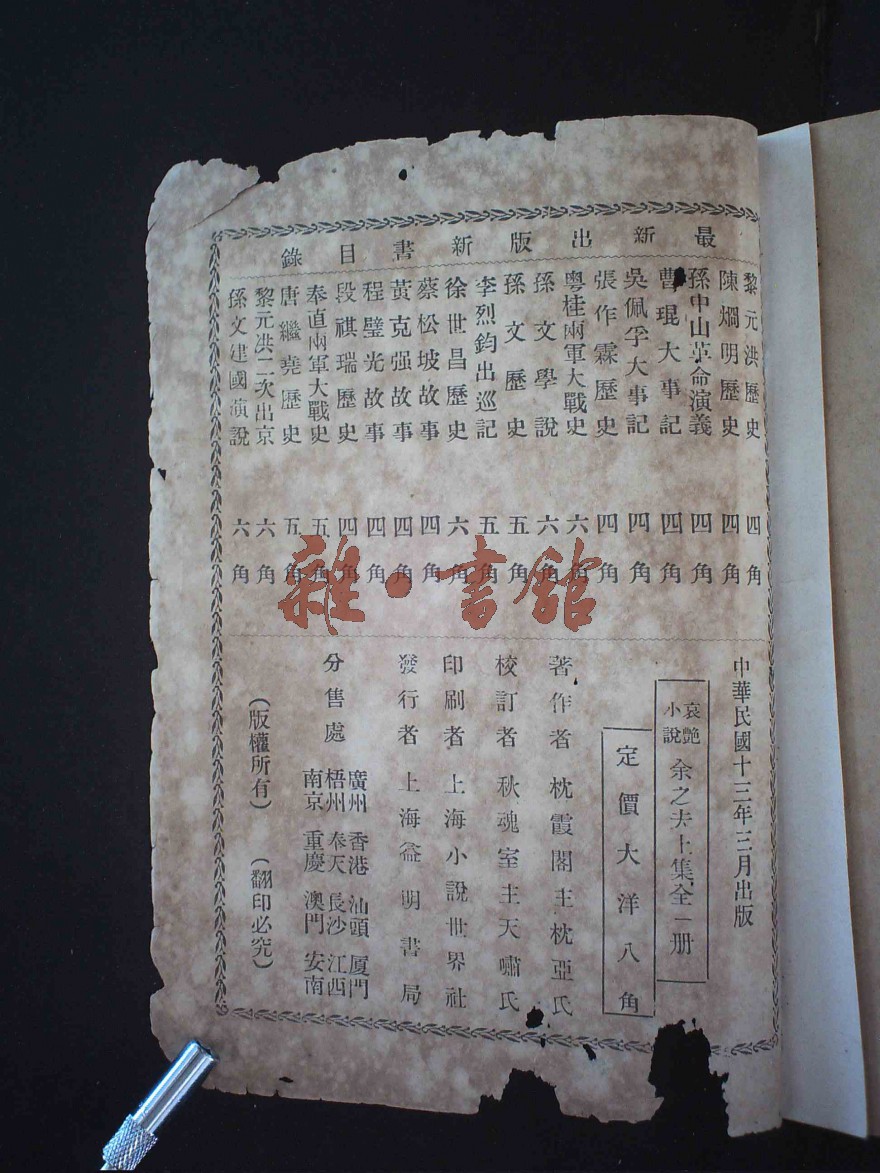 最新出版新書目錄
黎元洪歷史 四角
陳烱明歷史 四角
孫中山革命演義 四角
曹琨大事記 四角
吳佩孚大事記 四角
張作霖歷史 四角
粵桂兩軍大戰史 六角
孫文學說 六角
孫文歷史 五角
李烈鈞出巡記 五角
徐世昌歷史 六角
蔡松坡故事 四角
黃克强故事 四角
程璧光故事 四角
段祺瑞歷史 四角
奉直兩軍大戰史 五角
唐繼堯歷史 五角
黎元洪二次出京 六角
孫文建國演說 六角
中華民國十三年三月出版
哀艷小說 余之夫上集全一册
定價大洋八角
著作者 枕霞閣主枕亞氏
校訂者 秋魂室主天嘯氏
印刷者 上海小說世界社
發行者 上海益明書局
分售處
廣州 香港 汕頭 厦門
梧州 奉天 長沙 江西
南京 重慶 澳門 安南
（版權所有）（翻印必究）
雜·書館